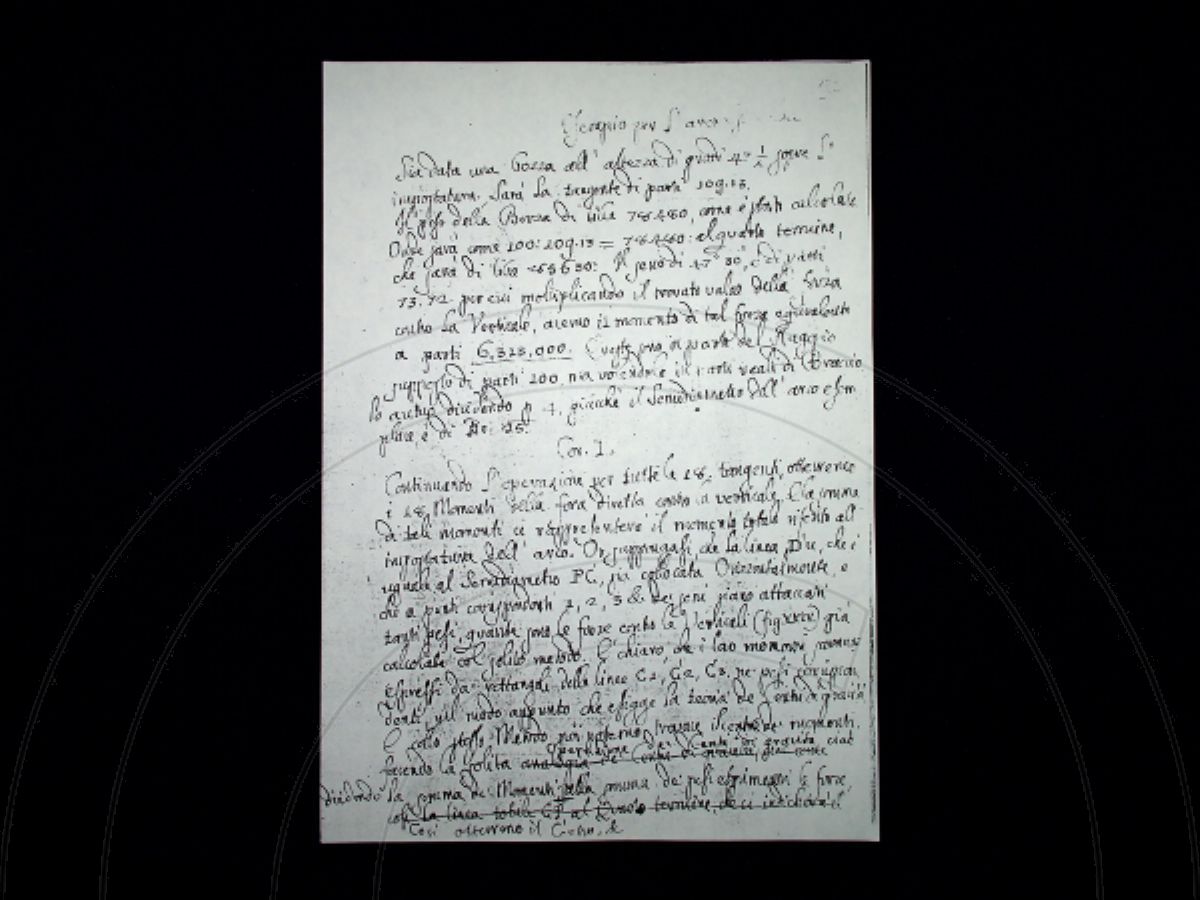 Esempio per l'arco
Sia data una Forza all'altezza di gradi 47 1/2 sopra l'
impostatura. Sarà la tangente di parti 109.13.
Il peso della Forza di libre 78480, come è stato calcolato
Onde sarà come 100: 109.13 = 78480: al quarto termine,
che sarà di libre Il seno di 47° 30', è di parti
73.72 per cui moltiplicando il trovato valor della forza
contro la Verticale, avremo il momento di tal forza equivalente
a parti 6,323,000. Queste sono di parte del Raggio
supposto di parti 100, ma volendole in parti reali di Braccio
lo avrem dividendo p 4, giacchè il Semidiametro dell'arco esem
plare, è di Br: 25.
Cor. I.
Continuando l'operazione per tutte le 18, tangenti, otteremo
i 18, Momenti della forza diretta contro la verticale. E la somma
di tali momenti ci rappresenterà il momento totale riferito all'
impostatura dell'arco. Or suppongasi, che la linea che è
uguale al Semidiametro FC, sia collocata Orizontalmente, e
che a punti corrispondenti 1, 2, 3 &c de' seni siano attaccati
tanti pesi, quante sono le forze contro le Verticali (fig xxix) già
calcolate col solito metodo. È chiaro, che i lor momenti saranno
Espressi da' rettangoli delle linee C1, C2, C3, ne' pesi corrispon
denti, nel modo appunto che esigge la teoria de' Centri di gravità
E collo stesso Metodo noi potremo trovare il centro de' momenti,
facendo la solita operazione de' Centri di gravità cioè
dividendo la somma de' Momenti pella somma de' pesi esprimenti le forze,
così la linea al termine, che ci indicherà il
Così otteremo il Centro, &c